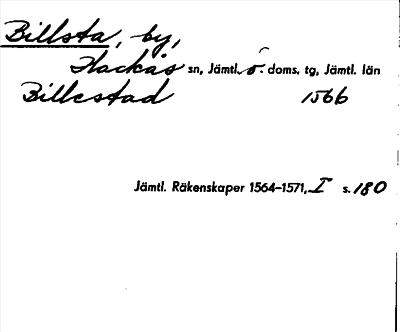 Billsta, by,
Hackås sn, Jämtl. ö. doms. tg, Jämtl. län
Billestad 1566
Jämtl. Räkenskaper 1564-1571, I s. 180